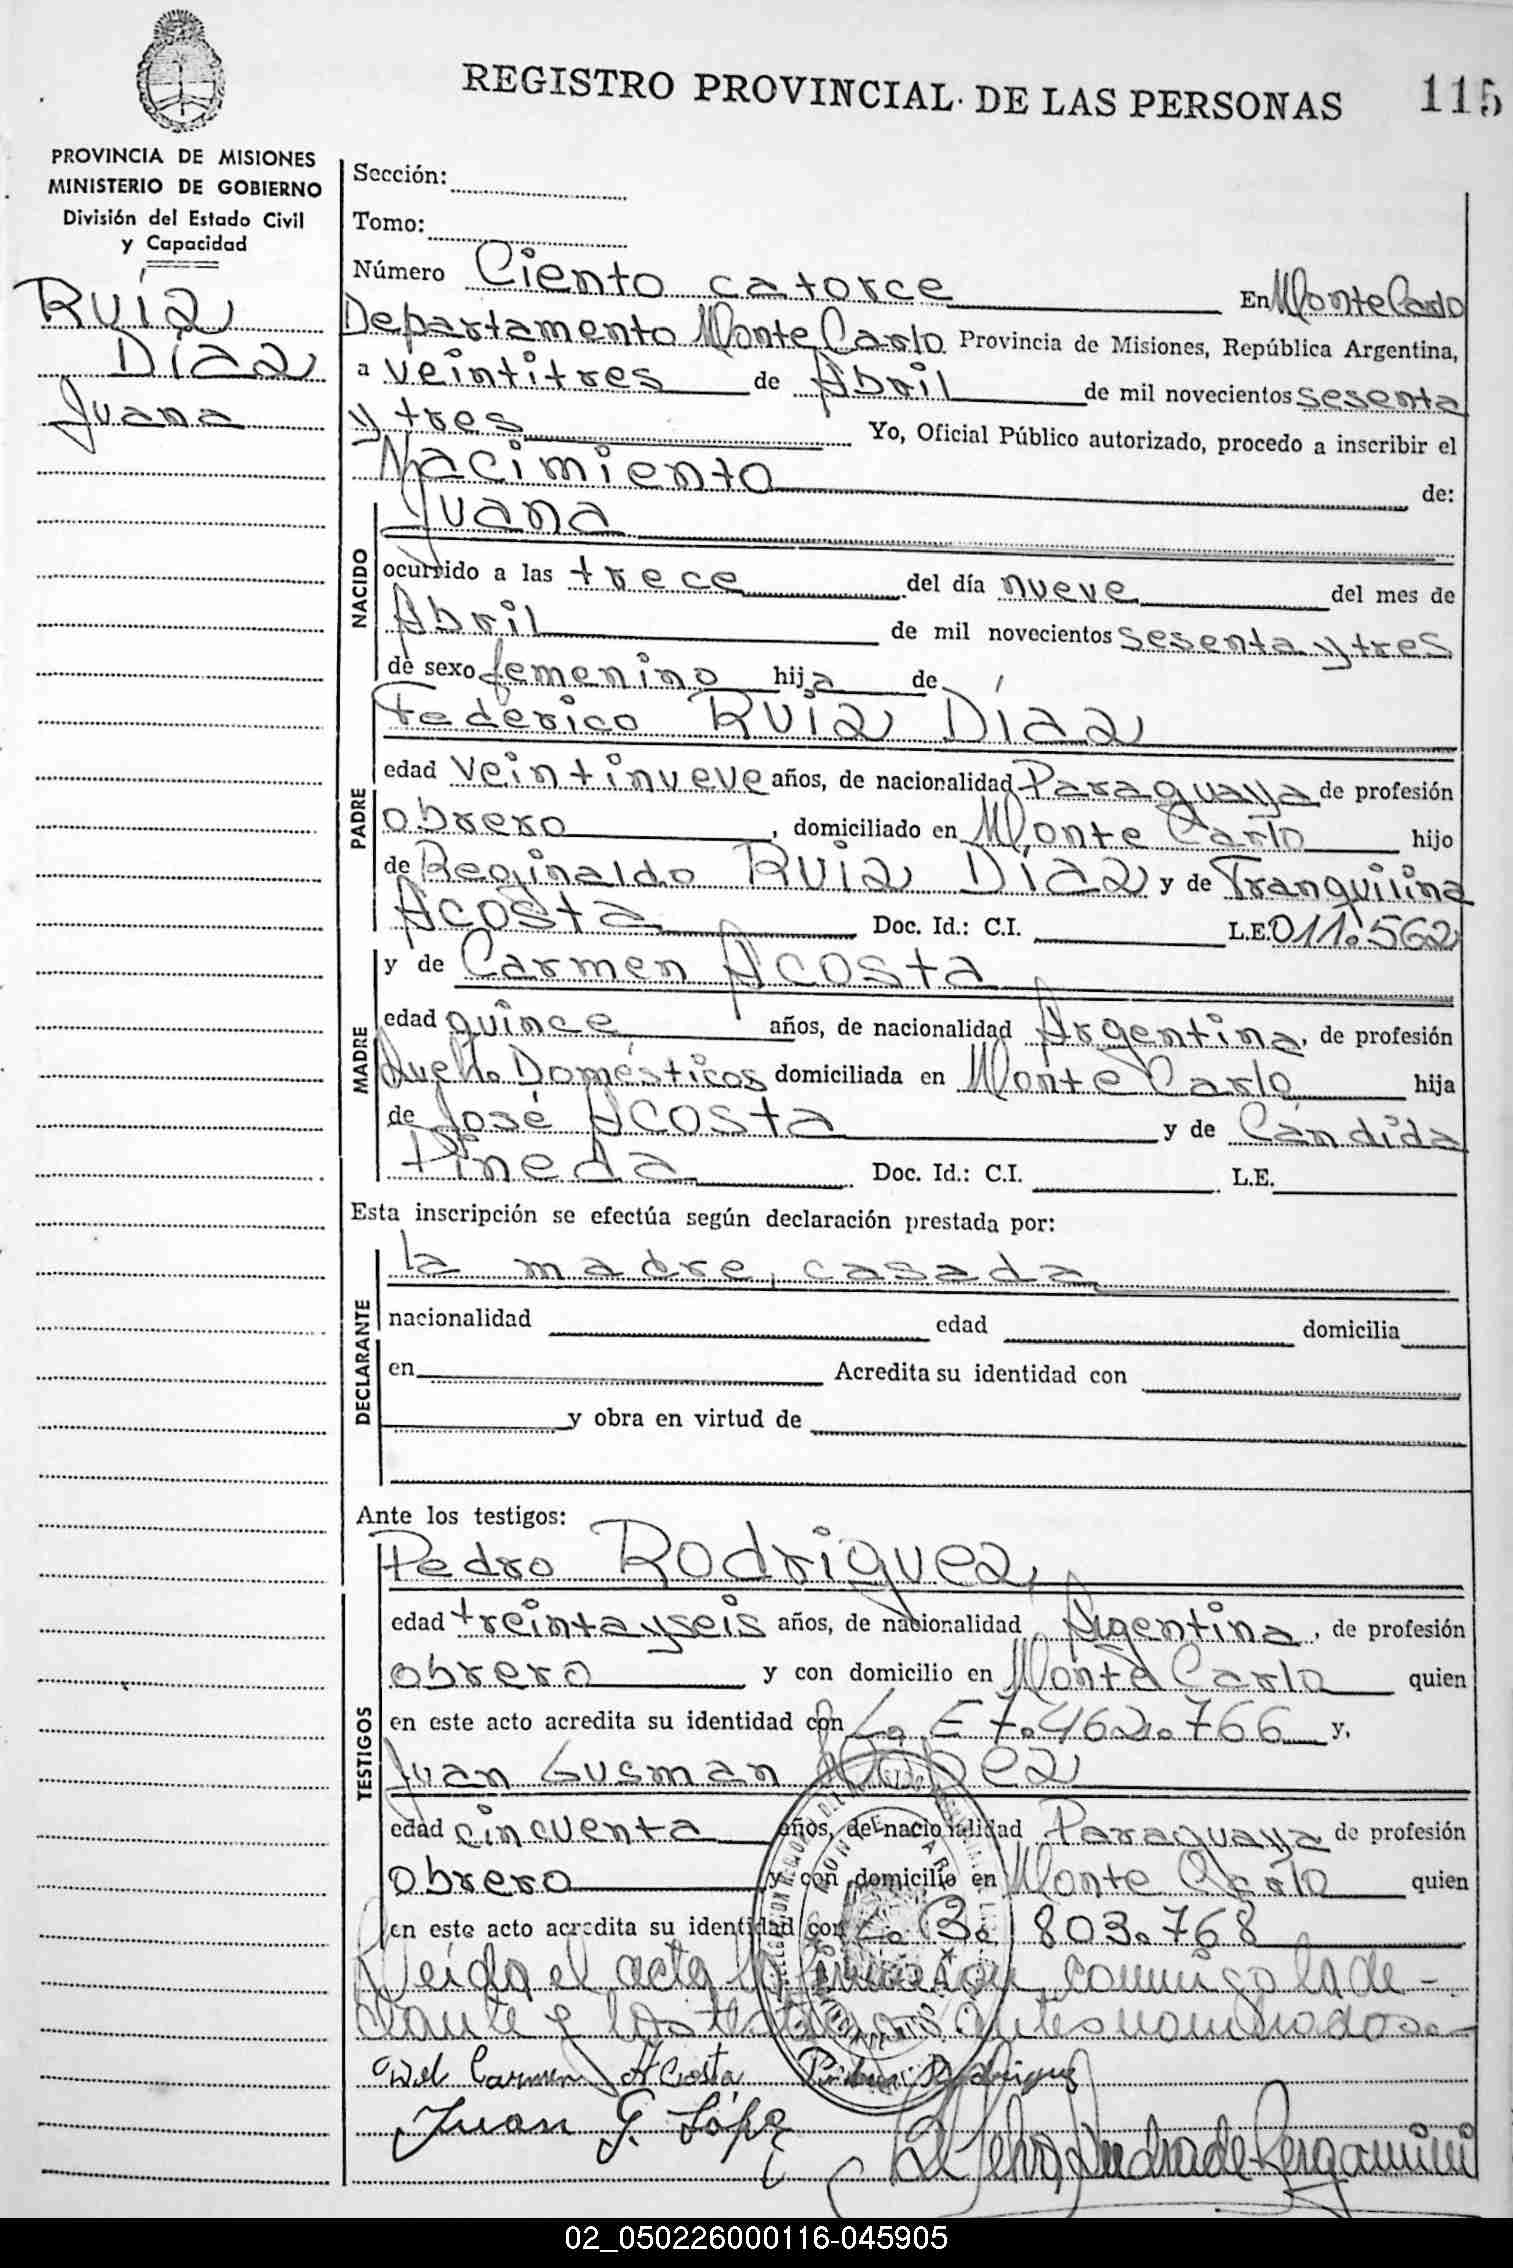 REGISTRO PROVINCIAL DE LAS PERSONAS 115
PROVINCIA DE MISIONES
MINISTERIO DE GOBIERNO
División del Estado Civil
y Capacidad
Ruíz
Díaz
Juana
Sección:
Tomo:
Número Ciento catorce En Monte Carlo
Departamento Monte Carlo Provincia de Misiones, República Argentina,
a veintitres de Abril de mil novecientos sesenta
y tres Yo, Oficial Público autorizado, procedo a inscribir el
Nacimiento de:
Juana
NACIDO
ocurrido a las trece del día nueve del mes de
Abril de mil novecientos sesenta y tres
de sexo femenino hija de
Federico Ruíz Díaz
PADRE
edad veintinueve años, de nacionalidad Paraguaya de profesión
obrero, domiciliado en Monte Carlo hijo
de Reginaldo Ruiz Díaz y de Tranquilina
Acosta Doc. Id.: C.I. L.E. 011.562
y de Carmen Acosta
MADRE
edad quince años, de nacionalidad Argentina, de profesión
Domésticos domiciliada en Monte Carlo hija
de José Acosta y de Cándida
Pineda Doc. Id.: C.I. L.E.
Esta inscripción se efectúa según declaración prestada por:
la madre, casada
DECLARANTE
nacionalidad edad domicilia
en Acredita su identidad con
y obra en virtud de
Ante los testigos:
Pedro Rodriguez
TESTIGOS
edad treinta y seis años, de nacionalidad Argentina, de profesión
obrero y con domicilio en Monte Carlo quien
en este acto acredita su identidad con L. E 7.462.766 y,
Juan Gusman López
edad cincuenta años, de nacionalidad Paraguaya de profesión
obrero y con domicilio en Monte Carlo quien
en este acto acredita su identidad con 803.768
Leída el acta la firman conmigo la de-
clante y los testigos antes nombrados.
del Carmen Acosta Rodriguez
Juan G. Lópz
Andrade Bergamini
02_050226000116-045905